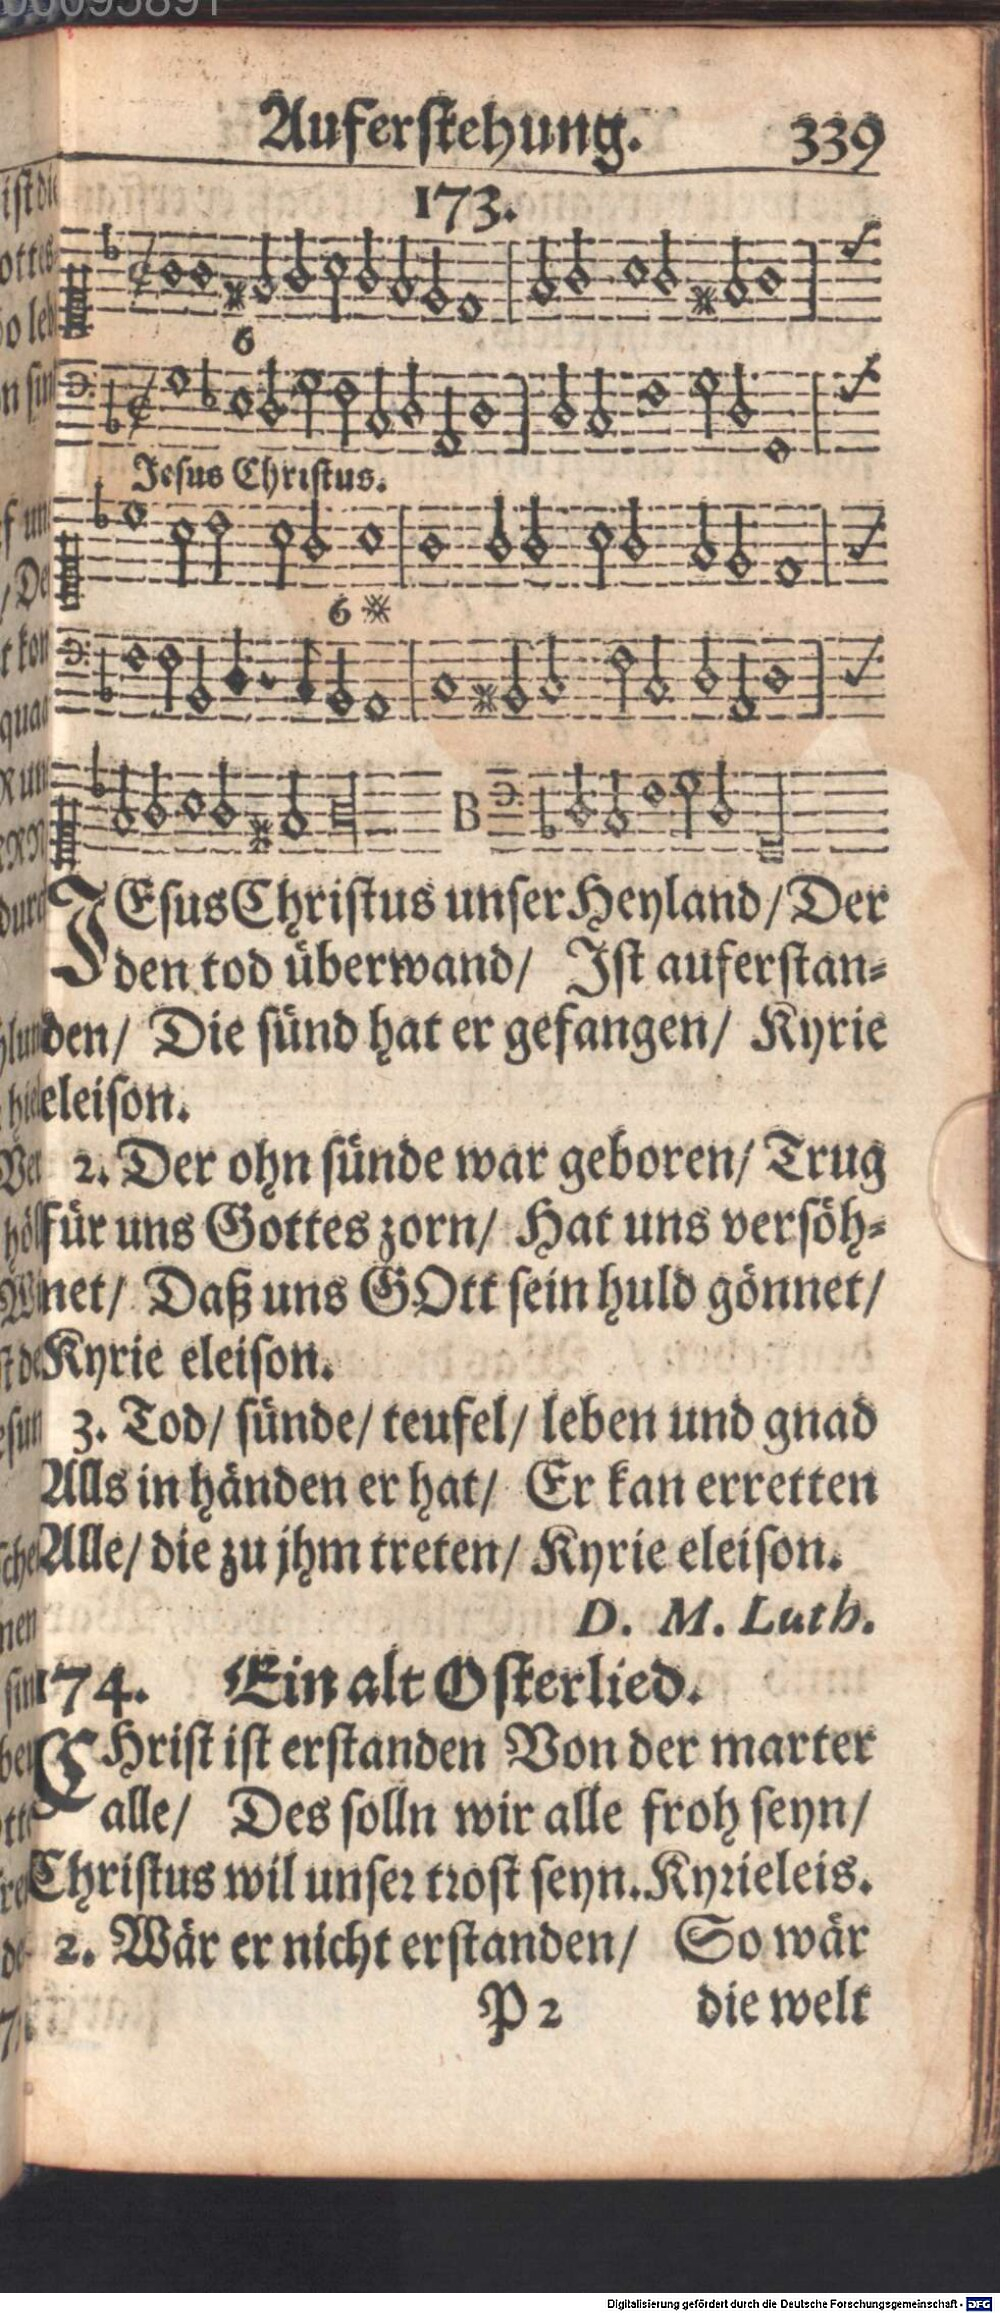 Auferſtehung. 339
173.
6
Jeſus Chriſtus.
6
B
JEſus Chriſtus unſer Heyland/ Der
den tod überwand/ Iſt auferſtan-
den/ Die ſünd hat er gefangen/ Kyrie
eleiſon.
2. Der ohn ſünde war geboren/ Trug
für uns Gottes zorn/ Hat uns verſöh-
net/ Daß uns GOtt ſein huld gönnet/
Kyrie eleiſon.
3. Tod/ ſünde/ teufel/ leben und gnad
Alls in händen er hat/ Er kan erretten
Alle/ die zu jhm treten/ Kyrie eleiſon.
D. M. Luth.
174. Ein alt Oſterlied.
CHriſt iſt erſtanden Von der marter
alle/ Des ſolln wir alle froh ſeyn/
Chriſtus wil unſer troſt ſeyn. Kyrieleis.
2. Wär er nicht erſtanden/ So wär
P 2 die welt
Digitalisierung gefördert durch die Deutsche Forschungsgemeinschaft - DFG